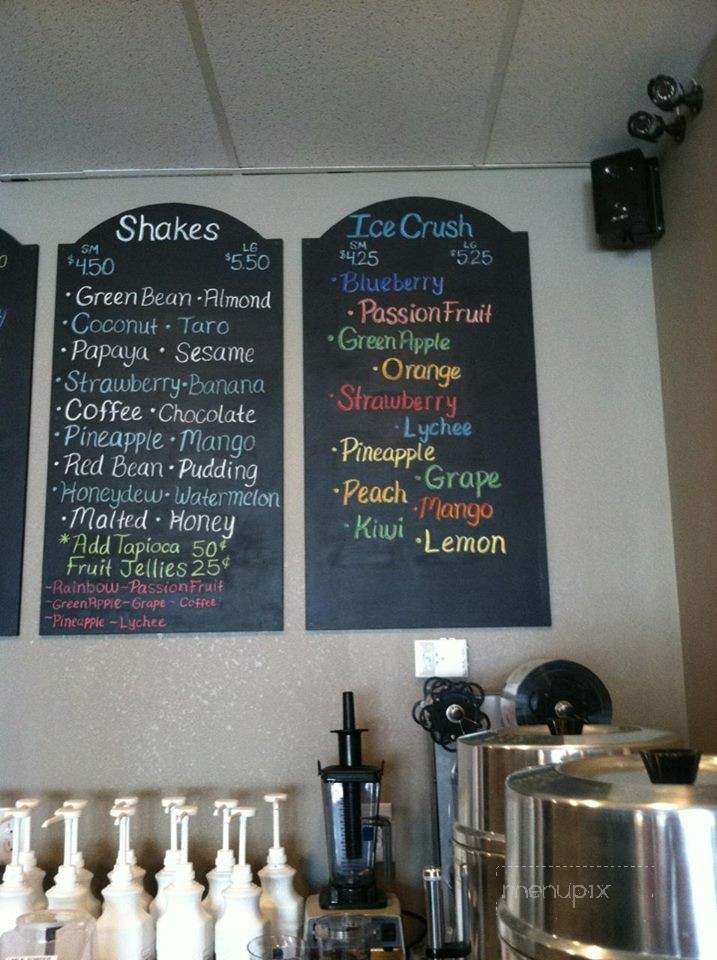 Shakes
SM LG
$4.50 $5.50
•Green Bean •Almond
•Coconut • Taro
•Papaya • Sesame
•Strawberry•Banana
•Coffee •Chocolate
•Pineapple •Mango
•Red Bean •Pudding
•Honeydew•Watermelon
•Malted • Honey
*Add Tapioca 50¢
Fruit Jellies 25¢
-Rainbow-Passion Fruit
-Green Apple-Grape-Coffee
-Pineapple -Lychee
Ice Crush
SM LG
$4.25 $5.25
•Blueberry
•Passion Fruit
•Green Apple
•Orange
•Strawberry
•Lychee
•Pineapple
•Grape
•Peach
•Mango
•Kiwi
•Lemon
menupix